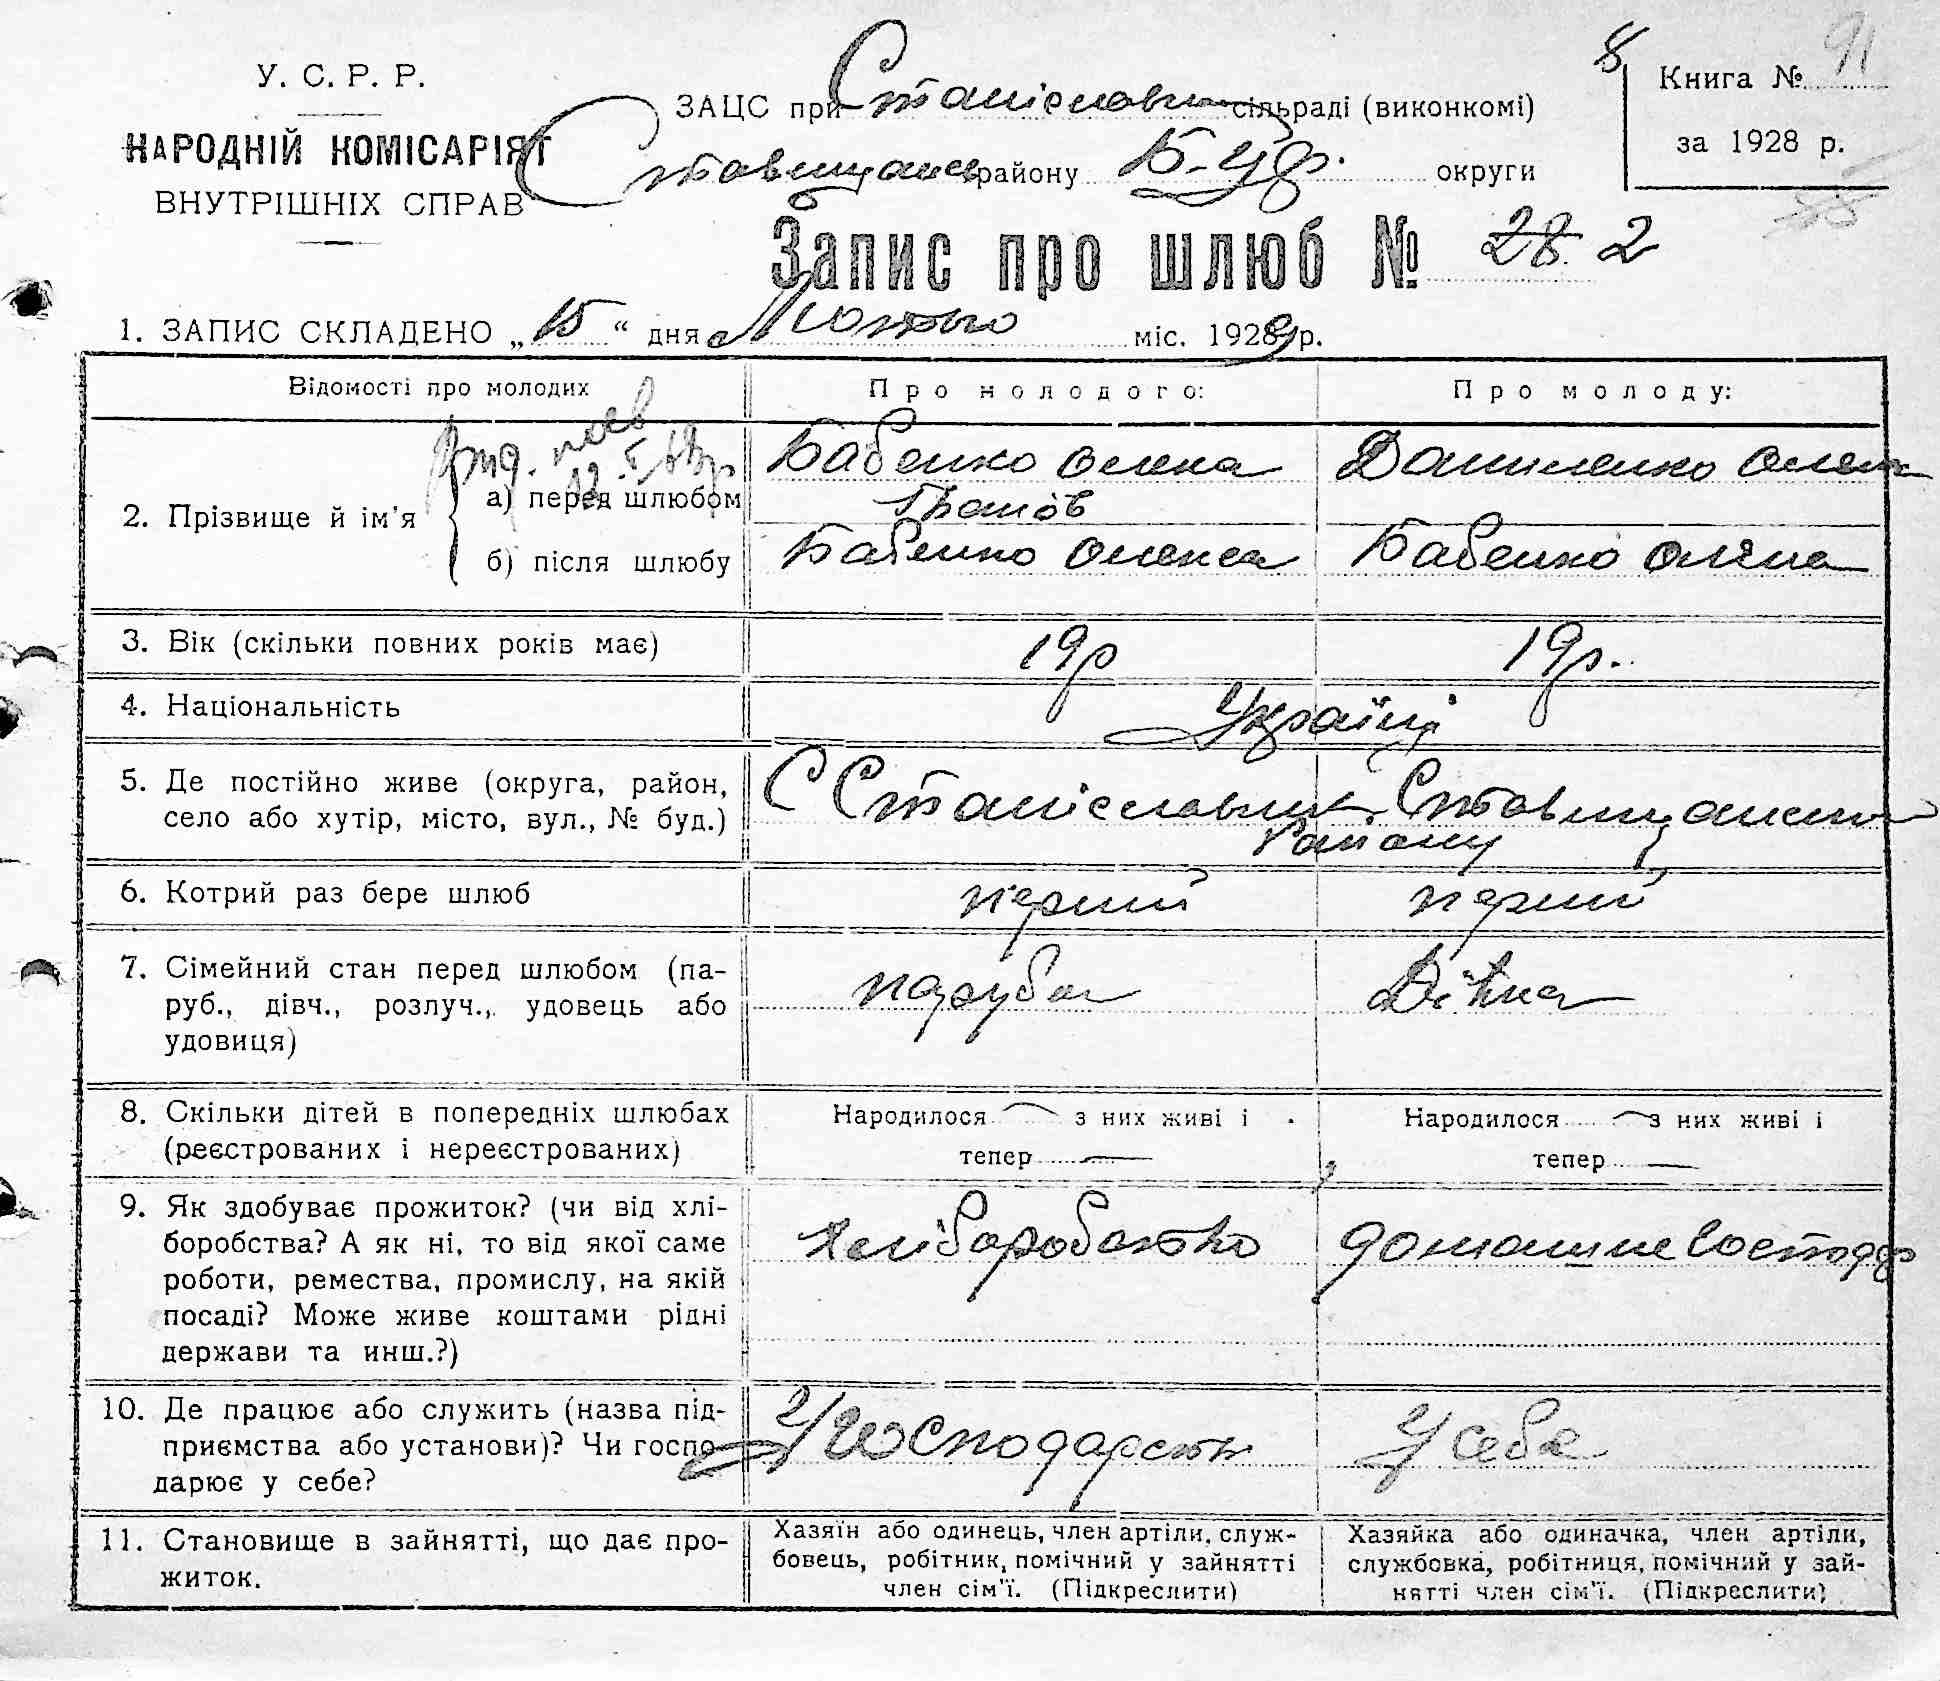 У. С. Р. Р.
НАРОДНІЙ КОМІСАРІЯТ
ВНУТРІШНІХ СПРАВ
ЗАЦС при Станіславчи сільраді (виконкомі)
Ставищансь району Б-Цер. округи
8
Книга № 91
за 1928 р.
Запис про шлюб № 28. 2
1. ЗАПИС СКЛАДЕНО „15“ дня Лютого міс. 1929 р.
Відомості про молодих
Про молодого:
Про молоду:
2. Прізвище й ім'я
а) перед шлюбом
Бабенко Олекса
Даниленко Олен
б) після шлюбу
Бабенко Олекса
Бабенко Олена
3. Вік (скільки повних років має)
19р
19р.
4. Національність
Україці
5. Де постійно живе (округа, район,
село або хутір, місто, вул., № буд.)
С Станіславчик Ставищанськ
Району
6. Котрий раз бере шлюб
перший
перший
7. Сімейний стан перед шлюбом (па-
руб., дівч., розлуч., удовець або
удовиця)
парубок
Дівка
8. Скільки дітей в попередніх шлюбах
(реєстрованих і нереєстрованих)
Народилося — з них живі і
тепер —
Народилося — з них живі і
тепер —
9. Як здобуває прожиток? (чи від хлі-
боробства? А як ні, то від якої саме
роботи, ремества, промислу, на якій
посаді? Може живе коштами рідні
держави та инш.?)
Хліборобство
домашнє господар
10. Де працює або служить (назва під-
приємства або установи)? Чи госпо-
дарює у себе?
У господарстві
У себе
11. Становище в зайнятті, що дає про-
житок.
Хазяїн або одинець, член артіли, служ-
бовець, робітник, помічний у зайнятті
член сім'ї. (Підкреслити)
Хазяйка або одиначка, член артіли,
службовка, робітниця, помічний у зай-
нятті член сім'ї. (Підкреслити)